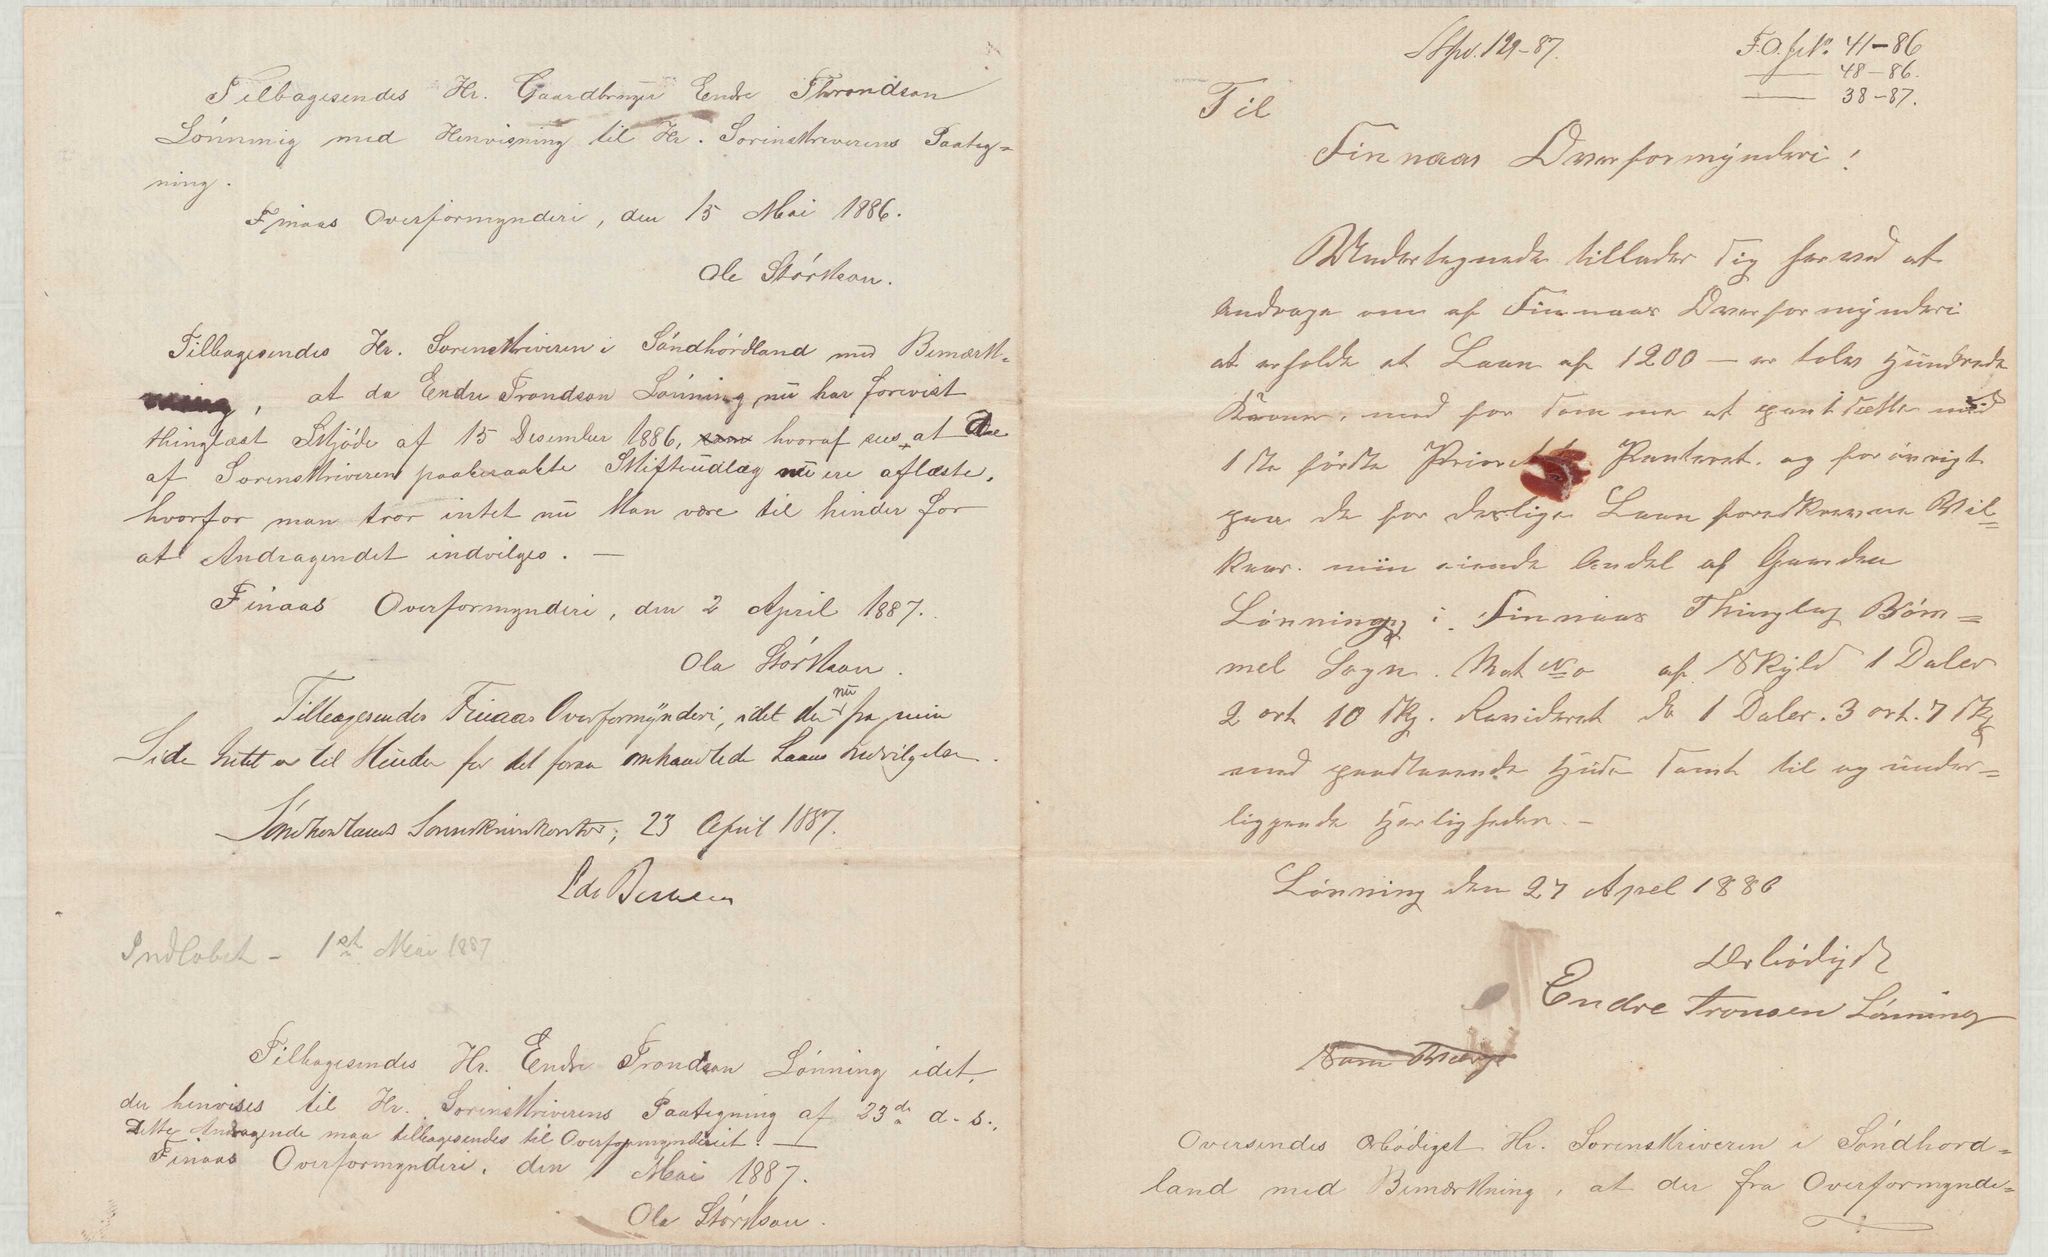 Tilbagesendes Hr. Gaardbruger Endre Throndson
Lönning med Henvisning til Hr. Sorenskriverens Paateg=
ning.
Finaas Overformynderi, den 15 Mai 1886.
Ole Störkson.
Tilbagesendes Hr. Sorenskriveren i Söndhördland med Bemærk-
ning, at da Endre Trondson Lönning nu har forevist
thinglæst Skjöde af 15 Desember 1886, hvoraf sees at de
af Sorenskriveren paaberaabte Skifteudlæg nu ere aflæste,
hvorfor man tror intet nu kan være til hinder for
at Andragendet indvilges. —
Finaas Overformynderi, den 2 April 1887.
Ole Störkson.
Tilbagesendes Finaas Overformynderi, idet der nu fra min
Side Intet er til Hinder for det foran omhandlede Laans Indvilgelse.
Söndhordlands Sorenskriverkontor, 23 April 1887.
Indlöbet - 1st Mai 1887
Tilbagesendes Hr. Endre Trondson Lönning idet,
der henvises til Hr. Sorenskriverens Paategning af 23de d. s.,
Dette Andragende maa tilbagesendes til Overformynderiet. —
Finaas Overformynderi, den 1 Mai 1887.
Ole Störkson.
129-87.
F.O. 41-86
— 48-86.
— 38-87.
Til
Finnaas Overformynderi!
Undertegnede tillader sig herved at
andrage om af Finnaas Overformynderi
at erholde et Laan af 1200 — er tolv Hundrede
Kroner, mod for samme at pantsætte med
1ste förste Prioritets Panteret. og forövrigt
paa de for deslige Laan foreskrevne Vil=
kaar. min eiende Andel af Gaarden
Lönning i Finnaas Thinglag Böm=
mel Sogn. Mat No af Skyld 1 Daler
2 ort 10 skj. Revideret da 1 Daler. 3 ort. 7 skj
med paastaaende Huse samt til og under=
liggende Herligheder. —
Lönning den 27 Apel 1886
Ærbödigst
Endre Tronsen Lönning
Oversendes ærbödigst Hr. Sorenskriveren i Söndhord=
land med Bemærkning, at der fra Overformynde=